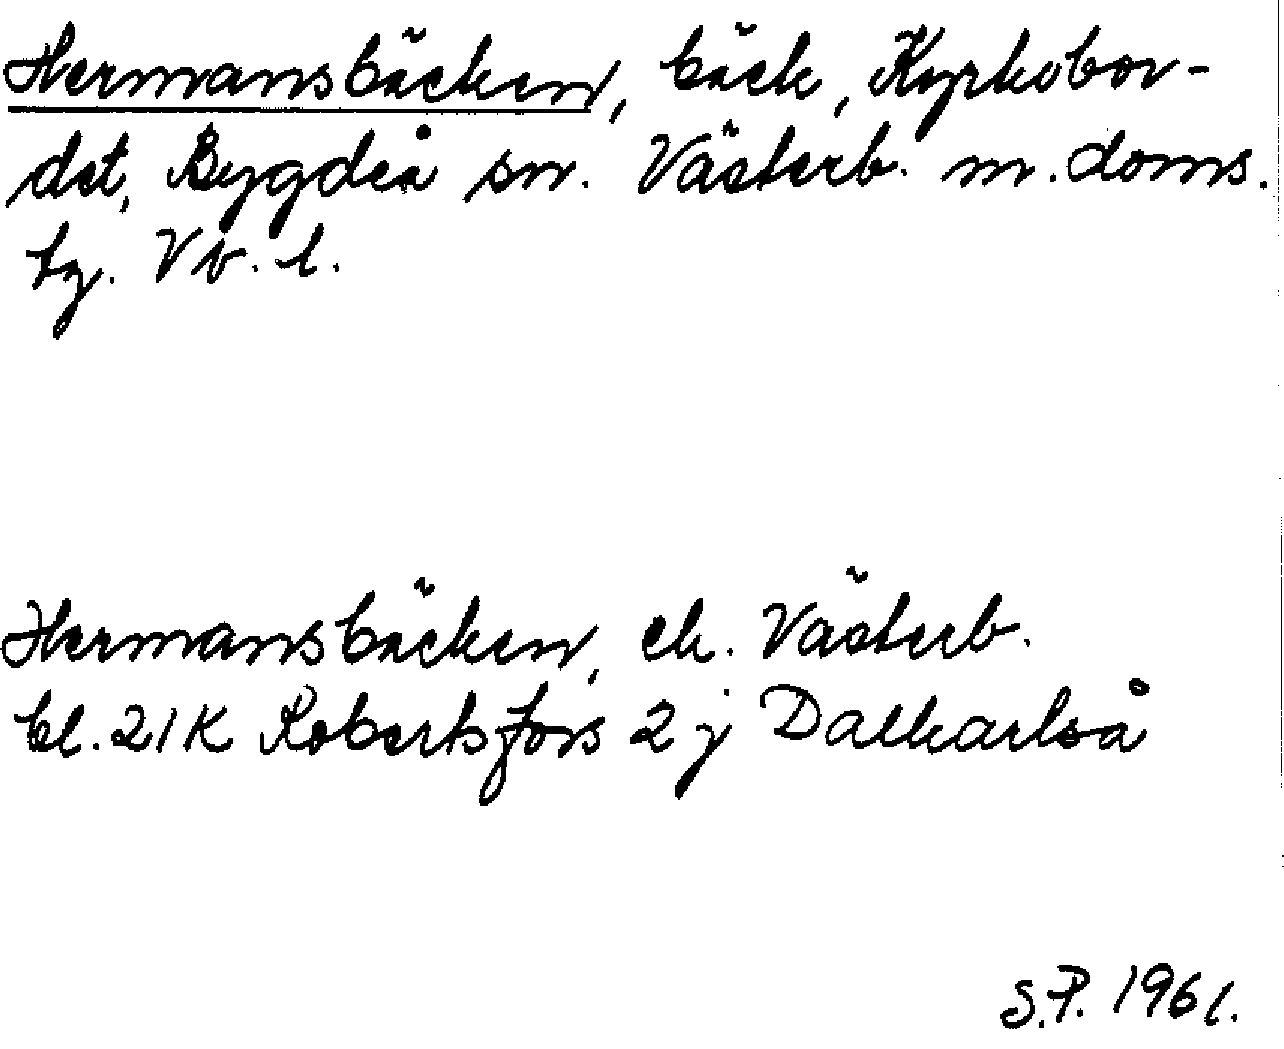 Hermansbäcken, bäck, Kyrkobor-
det, Bygdeå sn. Västerb. m. doms.
tg. Vb. l.
Hermansbäcken, ek. Västerb.
bl. 21K Robertsfors 2j Dalkarlså
S.P. 1961.